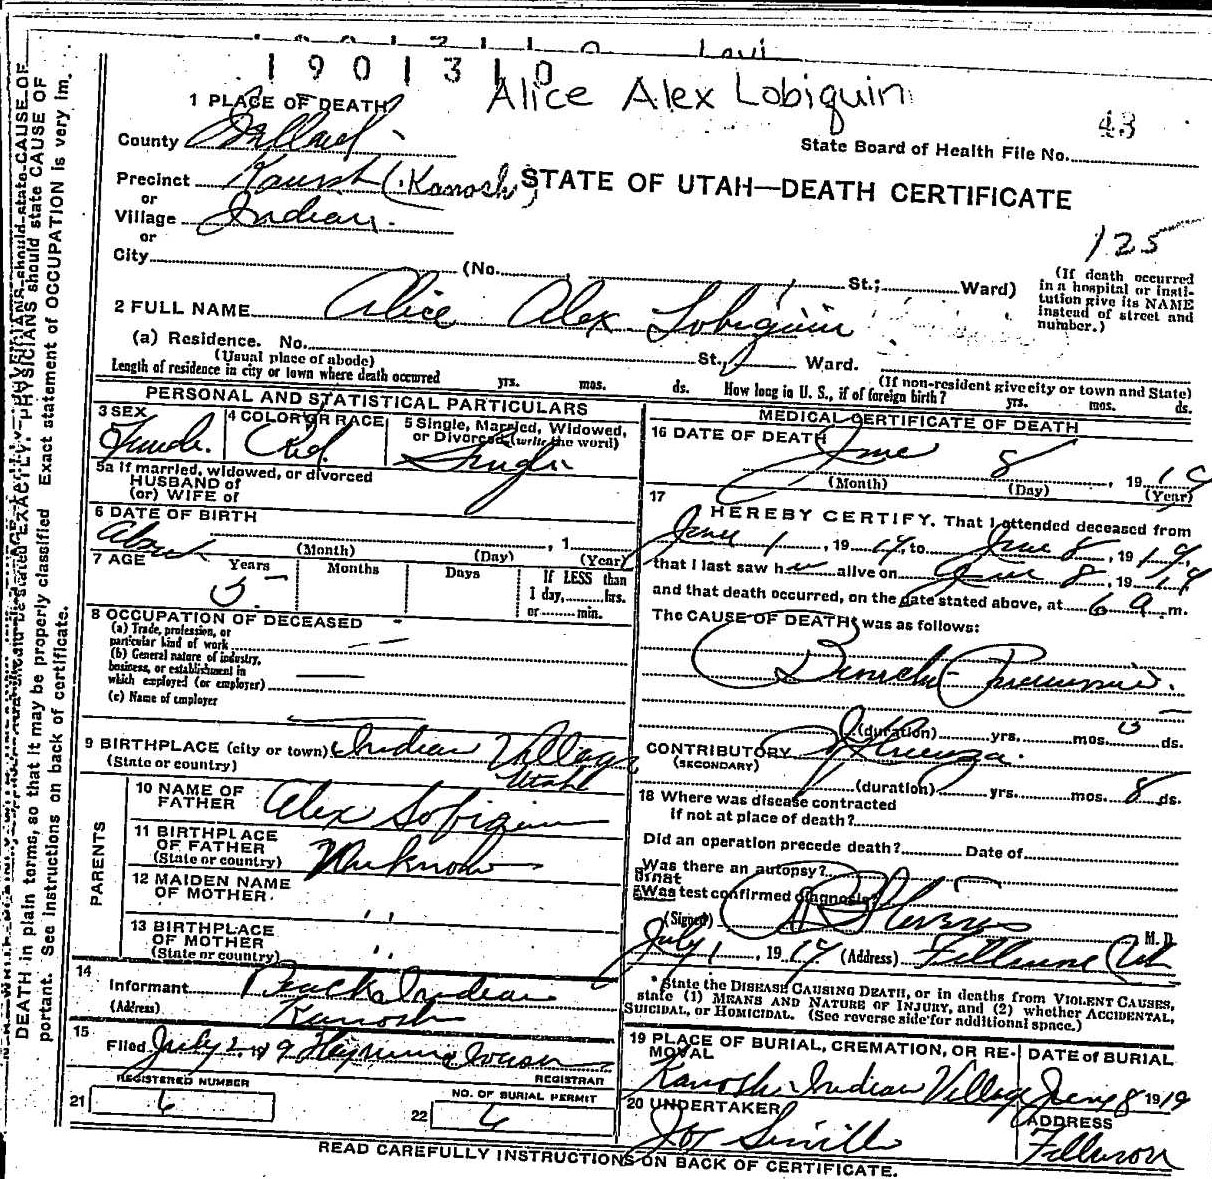 1901310
Alice Alex Lobiquin
43
1 PLACE OF DEATH
State Board of Health File No.
County Millard
Precinct Kanosh (Kanosh)
STATE OF UTAH—DEATH CERTIFICATE
or
Village Indian
125
or
City (No. St.; Ward)
(If death occurred in a hospital or insti-
tution give its NAME
instead of street and
number.)
2 FULL NAME Alice Alex Lobiquin
(a) Residence. No. St., Ward.
(Usual place of abode)
(If non-resident give city or town and State)
Length of residence in city or town where death occurred yrs. mos. ds. How long in U. S., if of foreign birth? yrs. mos. ds.
PERSONAL AND STATISTICAL PARTICULARS
3 SEX
Female
4 COLOR OR RACE
Red
5 Single, Married, Widowed,
or Divorced (write the word)
Single
5a If married, widowed, or divorced
HUSBAND of
(or) WIFE of
6 DATE OF BIRTH
About , 1
(Month) (Day) (Year)
7 AGE
Years Months Days
5
If LESS than
1 day, hrs.
or min.
8 OCCUPATION OF DECEASED
(a) Trade, profession, or
particular kind of work
(b) General nature of industry,
business, or establishment in
which employed (or employer)
(c) Name of employer
9 BIRTHPLACE (city or town) Indian Village
(State or country) Utah
PARENTS
10 NAME OF
FATHER Alex Lobiquin
11 BIRTHPLACE
OF FATHER
(State or country) Unknown
12 MAIDEN NAME
OF MOTHER "
13 BIRTHPLACE
OF MOTHER
(State or country) "
14
Informant Indian
(Address) Kanosh
15
Filed July 2 1919
REGISTRAR
REGISTERED NUMBER
21 6
NO. OF BURIAL PERMIT
22 6
MEDICAL CERTIFICATE OF DEATH
16 DATE OF DEATH
June 8, 1919
(Month) (Day) (Year)
17
I HEREBY CERTIFY, That I attended deceased from
June 1, 1919, to June 8, 1919,
that I last saw her alive on June 8, 1919
and that death occurred, on the date stated above, at 6 a m.
The CAUSE OF DEATH was as follows:
Broncho Pneumonia.
(duration) yrs. mos. 5 ds.
CONTRIBUTORY Influenza.
(SECONDARY)
(duration) yrs. mos. 8 ds.
18 Where was disease contracted
if not at place of death?
Did an operation precede death? Date of
Was there an autopsy?
What
Was test confirmed diagnosis?
(Signed) M. D.
July 1, 1919 (Address) Fillmore Ut
*State the DISEASE CAUSING DEATH, or in deaths from VIOLENT CAUSES,
state (1) MEANS AND NATURE OF INJURY, and (2) whether ACCIDENTAL,
SUICIDAL, or HOMICIDAL. (See reverse side for additional space.)
19 PLACE OF BURIAL, CREMATION, OR RE-
MOVAL
Kanosh Indian Village
DATE of BURIAL
June 8 1919
20 UNDERTAKER
ADDRESS
Fillmore
READ CAREFULLY INSTRUCTIONS ON BACK OF CERTIFICATE.
DEATH in plain terms, so that it may be properly classified. Exact statement of OCCUPATION is very im-
portant. See instructions on back of certificate.